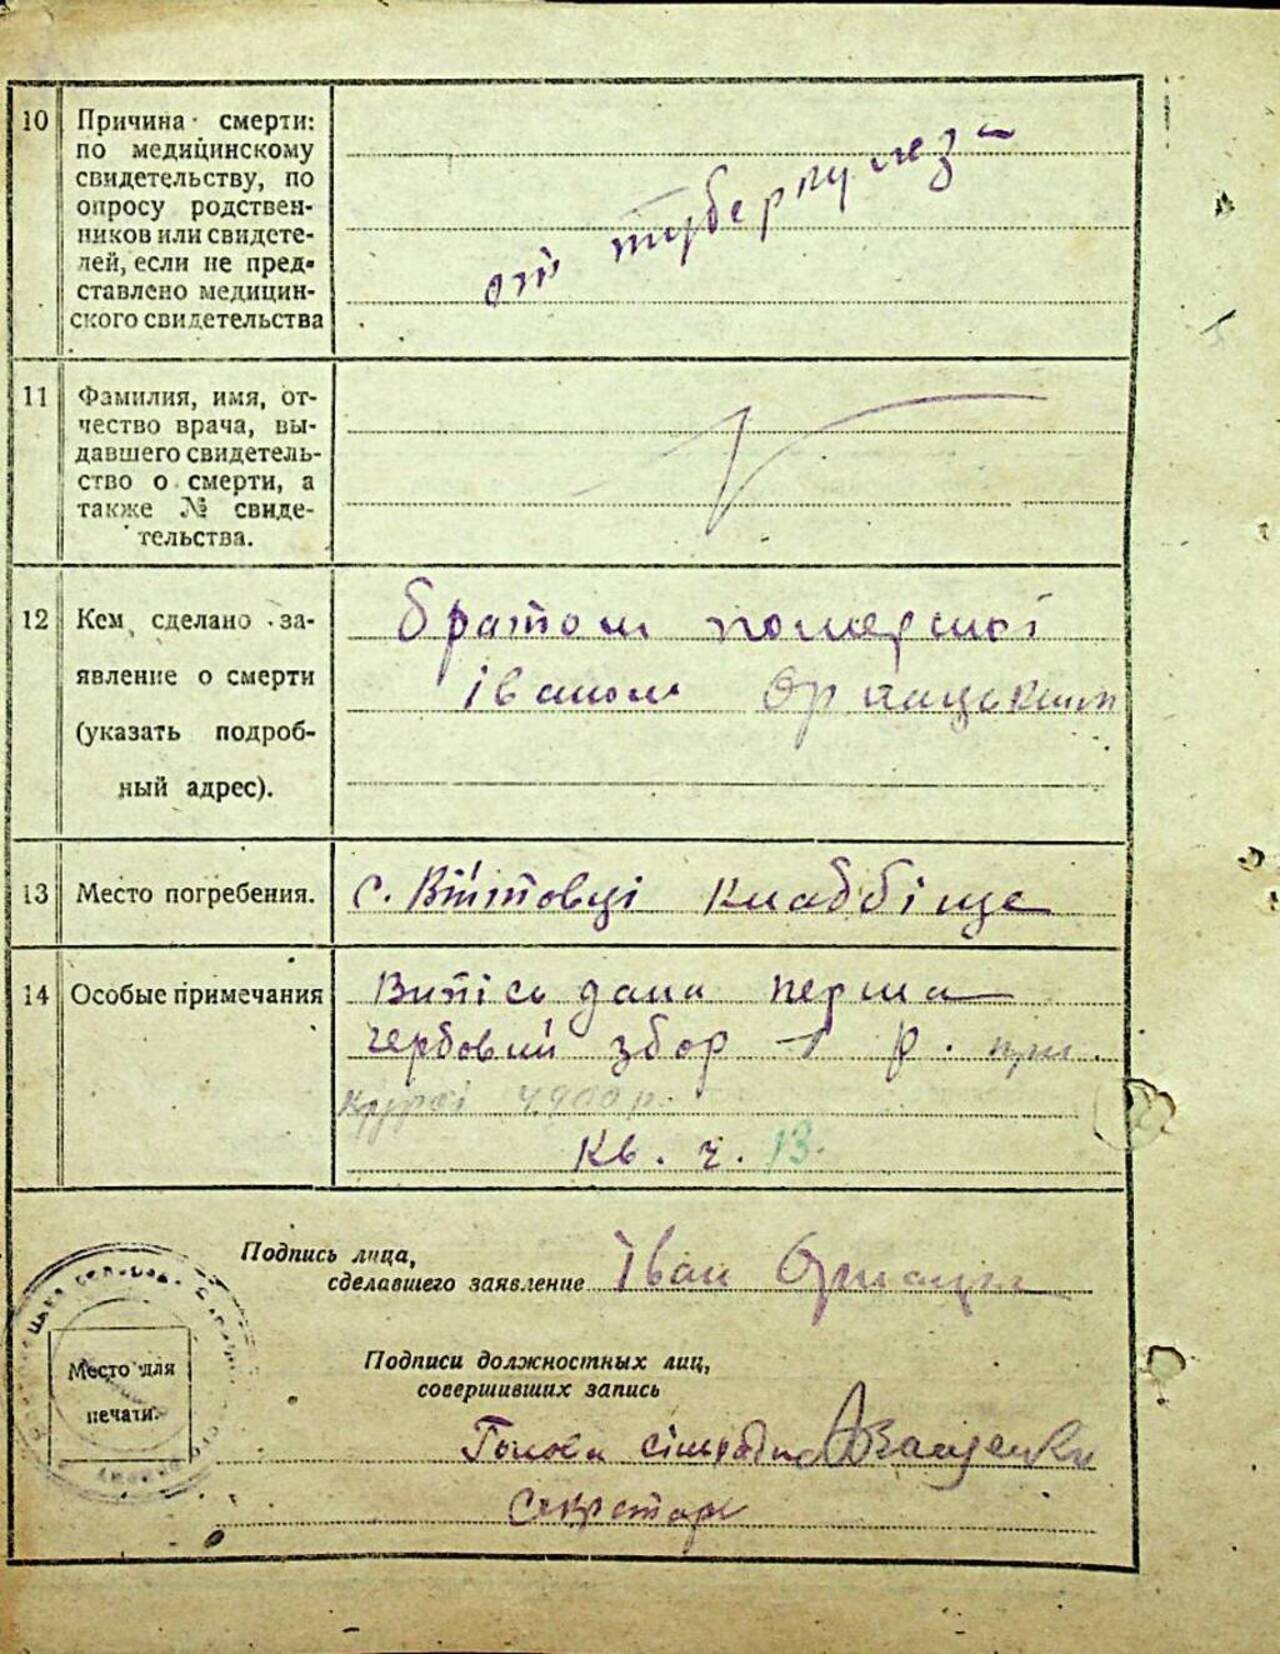 10
Причина смерти:
по медицинскому
свидетельству, по
опросу родствен-
ников или свидете-
лей, если не пред-
ставлено медицин-
ского свидетельства
от туберкулеза
11
Фамилия, имя, от-
чество врача, вы-
давшего свидетель-
ство о смерти, а
также № свиде-
тельства.
12
Кем сделано за-
явление о смерти
(указать подроб-
ный адрес).
братом помершої
Іваном
13
Место погребения.
с. Війтовці кладбіще
14
Особые примечания
Випісь дана перша
гербовий збор 1 р. при
курсі р.
Кв. ч. 13.
Подпись лица,
сделавшего заявление Іван
Место для
печати.
Подписи должностных лиц,
совершивших запись
Голова сільради
Секретарь